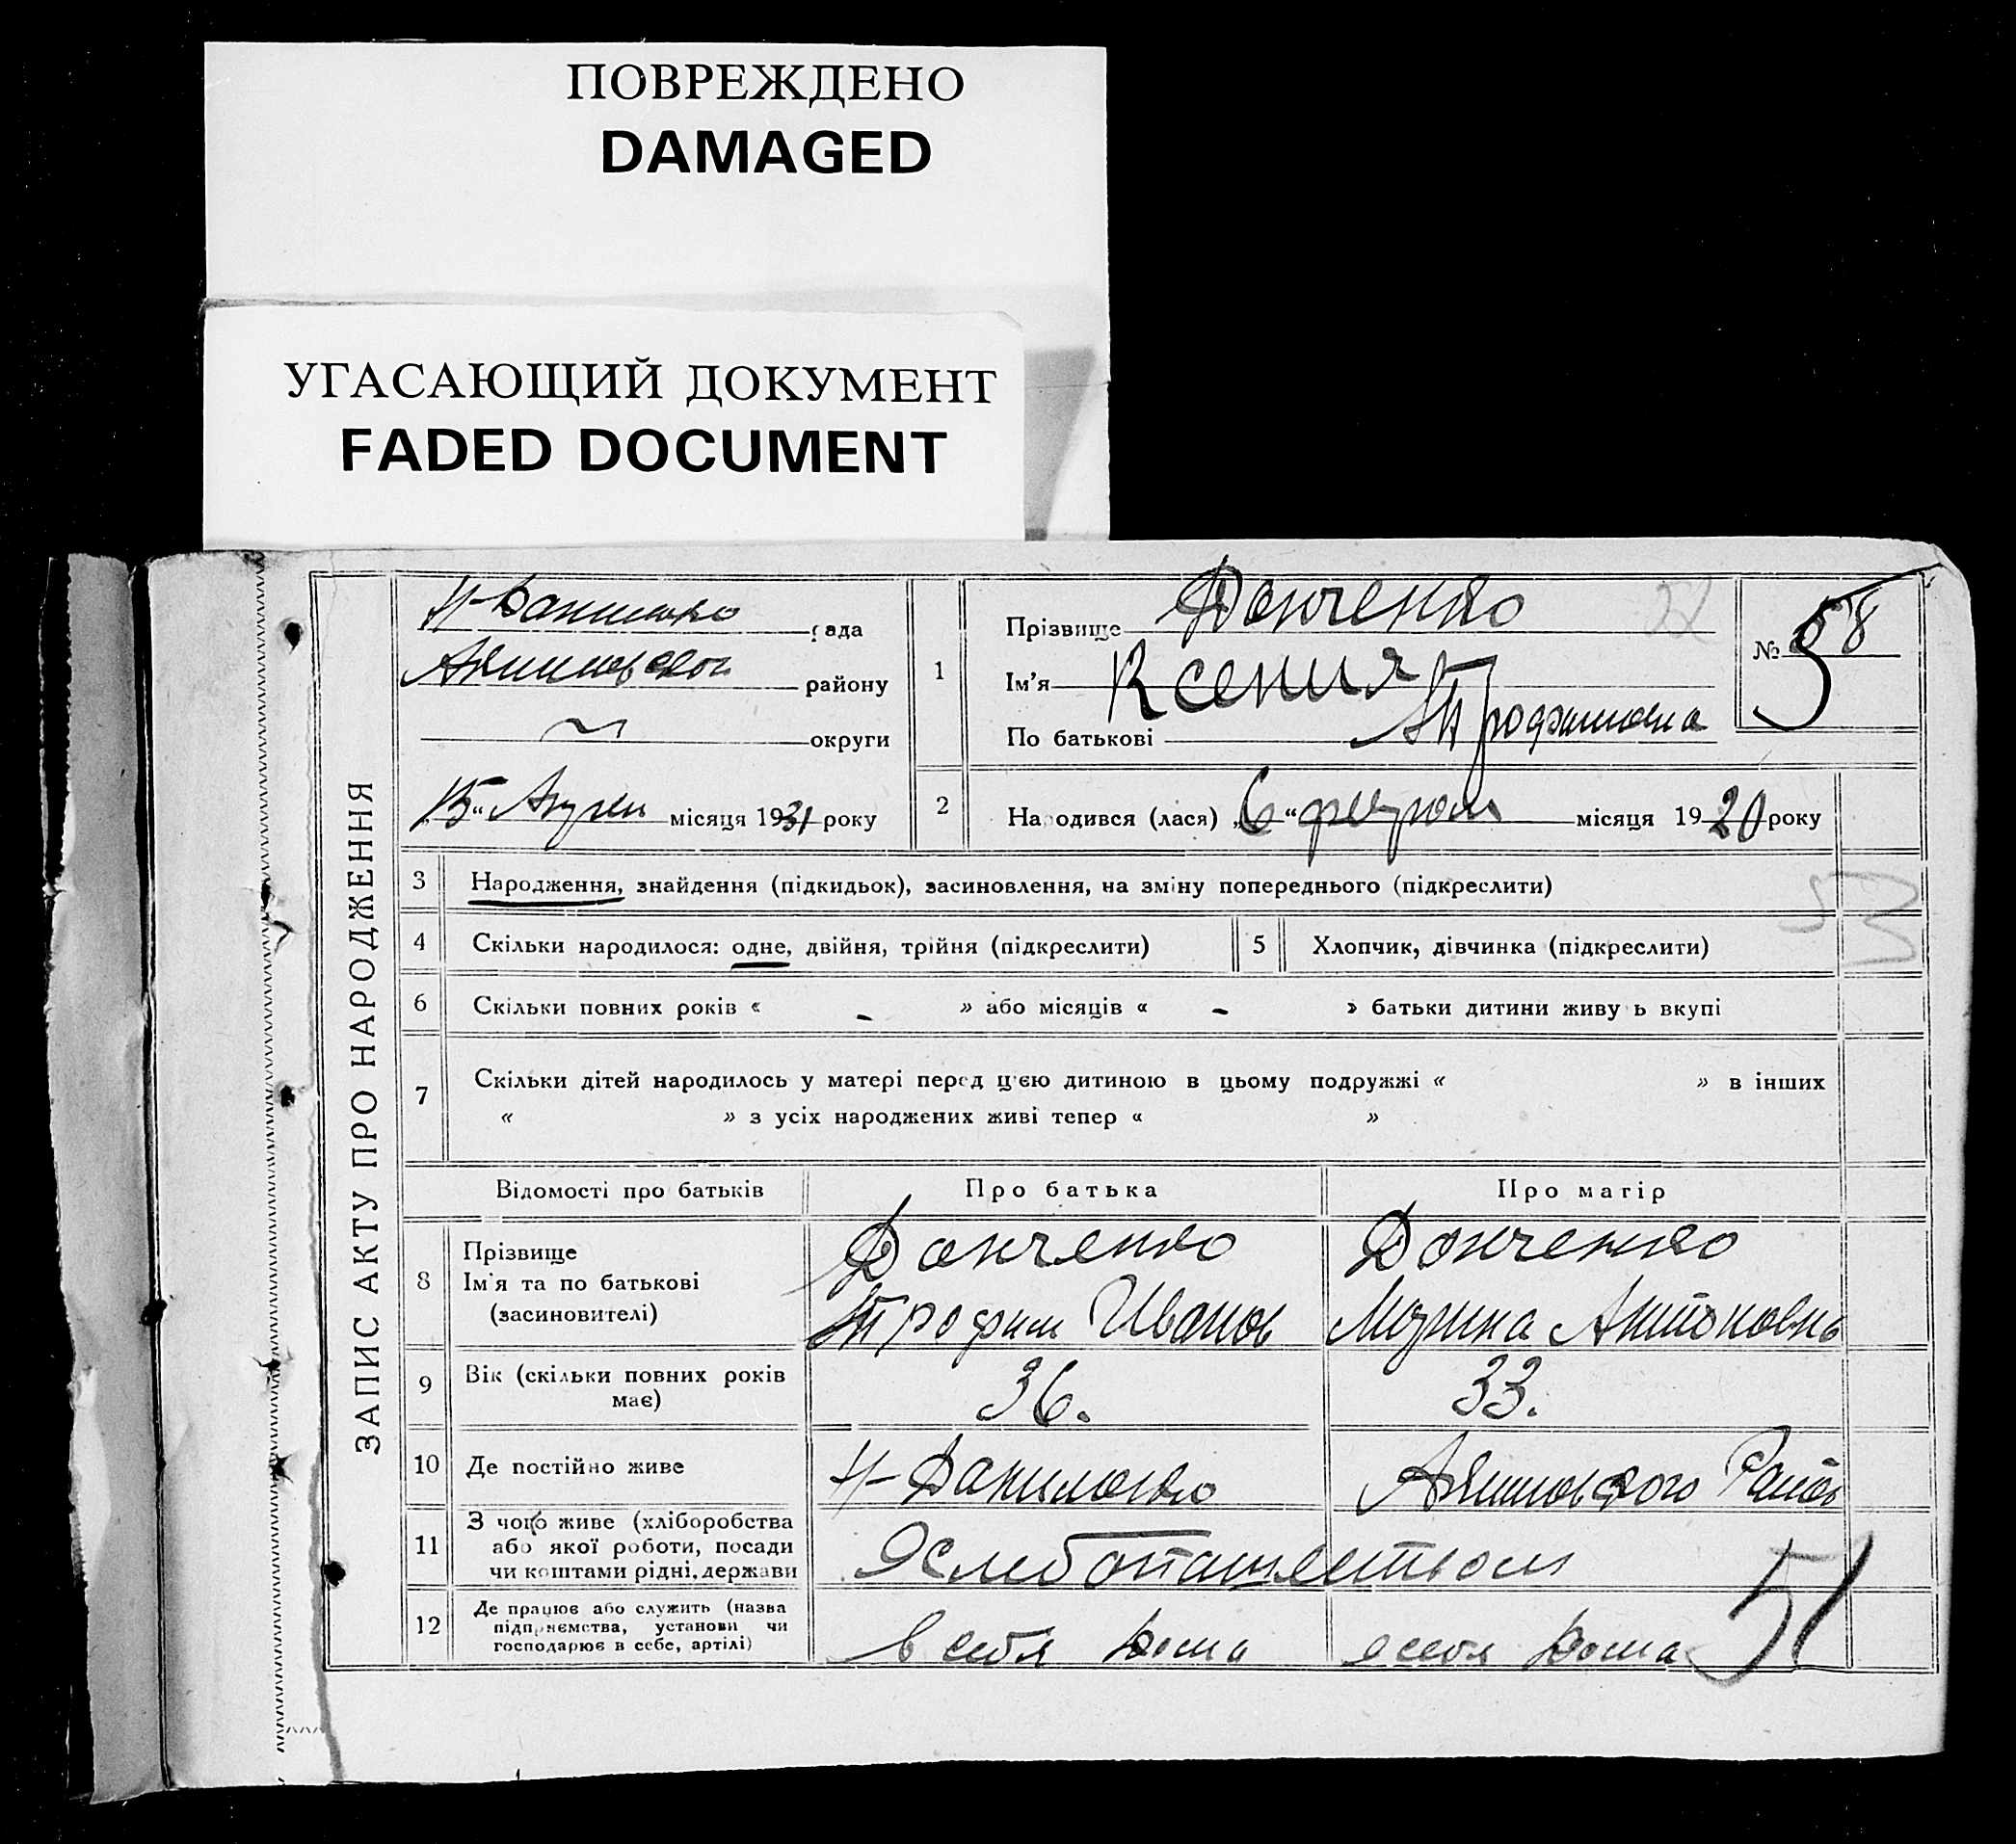 ПОВРЕЖДЕНО
DAMAGED
УГАСАЮЩИЙ ДОКУМЕНТ
FADED DOCUMENT
ЗАПИС АКТУ ПРО НАРОДЖЕННЯ
рада
району
округи
„15“ місяця 1931 року
1
Прізвище Донченко
Ім’я Ксения
По батькові Трофимовна
№ 58
52
2
Народився (лася) „6“ місяця 1920 року
3 Народження, знайдення (підкидьок), засиновлення, на зміну попереднього (підкреслити)
53
4 Скільки народилося: одне, двійня, трійня (підкреслити)
5 Хлопчик, дівчинка (підкреслити)
6 Скільки повних років « - » або місяців « - » батьки дитини живуть вкупі
7 Скільки дітей народилось у матері перед цією дитиною в цьому подружжі « » в інших
« » з усіх народжених живі тепер « »
Відомості про батьків Про батька Про матір
8 Прізвище
Ім’я та по батькові
(засиновителі)
Донченко
Трофим Иванов
Донченко
Марина Антоновна
9 Вік (скільки повних років
має)
36. 33.
10 Де постійно живе Н-Даниловка Акимовского Район
11 З чого живе (хліборобства
або якої роботи, посади
чи коштами рідні, держави
Хлебопашеством
12 Де працює або служить (назва
підприємства, установи чи
господарює в себе, артілі)
в себя дома у себя дома
51